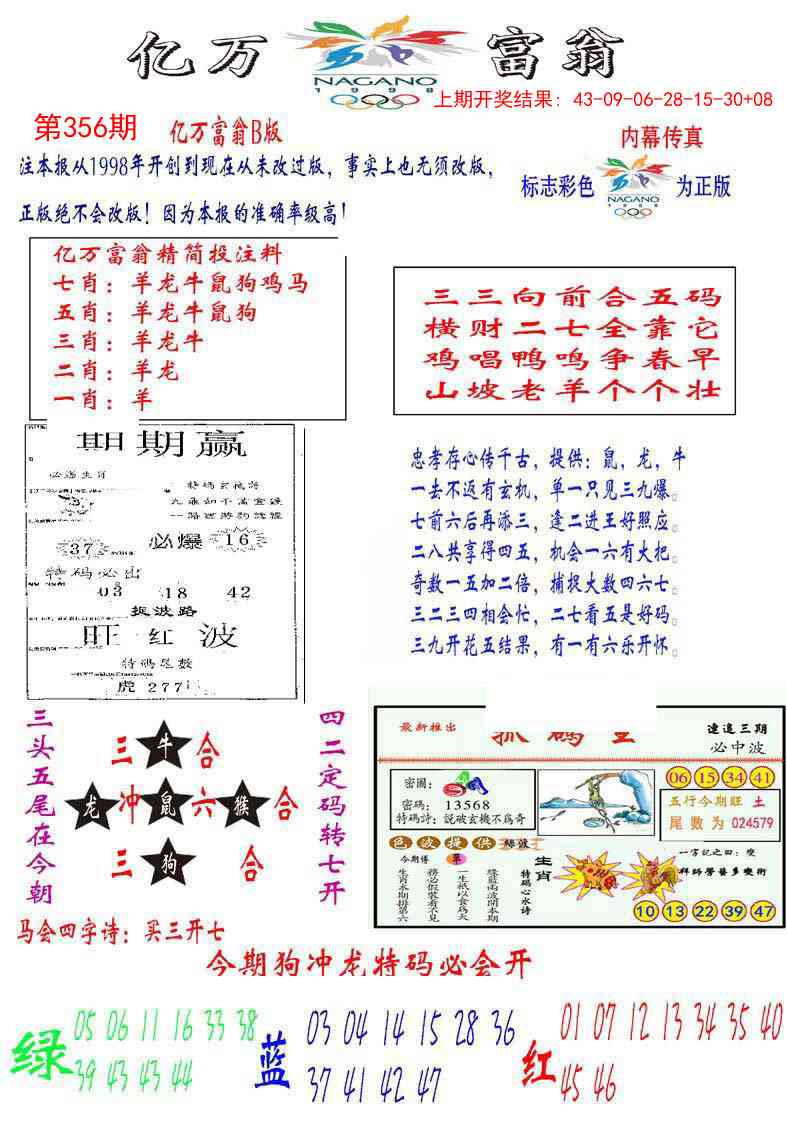 亿万
富翁
NAGANO
1998
上期开奖结果：43-09-06-28-15-30+08
第356期
亿万富翁B版
内幕传真
注本报从1998年开创到现在从未改过版，事实上也无须改版，
正版绝不会改版！因为本报的准确率级高！
标志彩色
NAGANO
1998
为正版
亿万富翁精简投注料
七肖：羊龙牛鼠狗鸡马
五肖：羊龙牛鼠狗
三肖：羊龙牛
二肖：羊龙
一肖：羊
三三向前合五码
横财二七全靠它
鸡唱鸭鸣争春早
山坡老羊个个壮
期期赢
必爆
37
16
特码必出
03 18 42
捉波路
旺红波
特码尾数
虎277
忠孝存心传千古，提供：鼠，龙，牛
一去不返有玄机，单一只见三九爆。
七前六后再添三，逢二进王好照应。
二八共享得四五，机会一六有大把。
奇数一五加二倍，捕捉大数四六七。
三二三四相会忙，二七看五是好码。
三九开花五结果，有一有六乐开怀。
三头五尾在今朝
三 牛 合
龙 冲 鼠 六 猴 合
三 狗 合
四二定码转七开
最新推出
連追三期
必中波
06 15 34 41
密圖：
密碼：13568
特碼詩：説破玄機不爲奇
五行今期旺 土
尾数为 024579
色波提供
綠波
今期傳
生肖本期排第六
務必假裝看不见
一生祇以食爲大
特碼心水诗
生肖
一字記之曰：變
10 13 22 39 47
马会四字诗：买三开七
今期狗冲龙特码必会开
绿
05 06 11 16 33 38
39 43 43 44
蓝
03 04 14 15 28 36
37 41 42 47
红
01 07 12 13 34 35 40
45 46